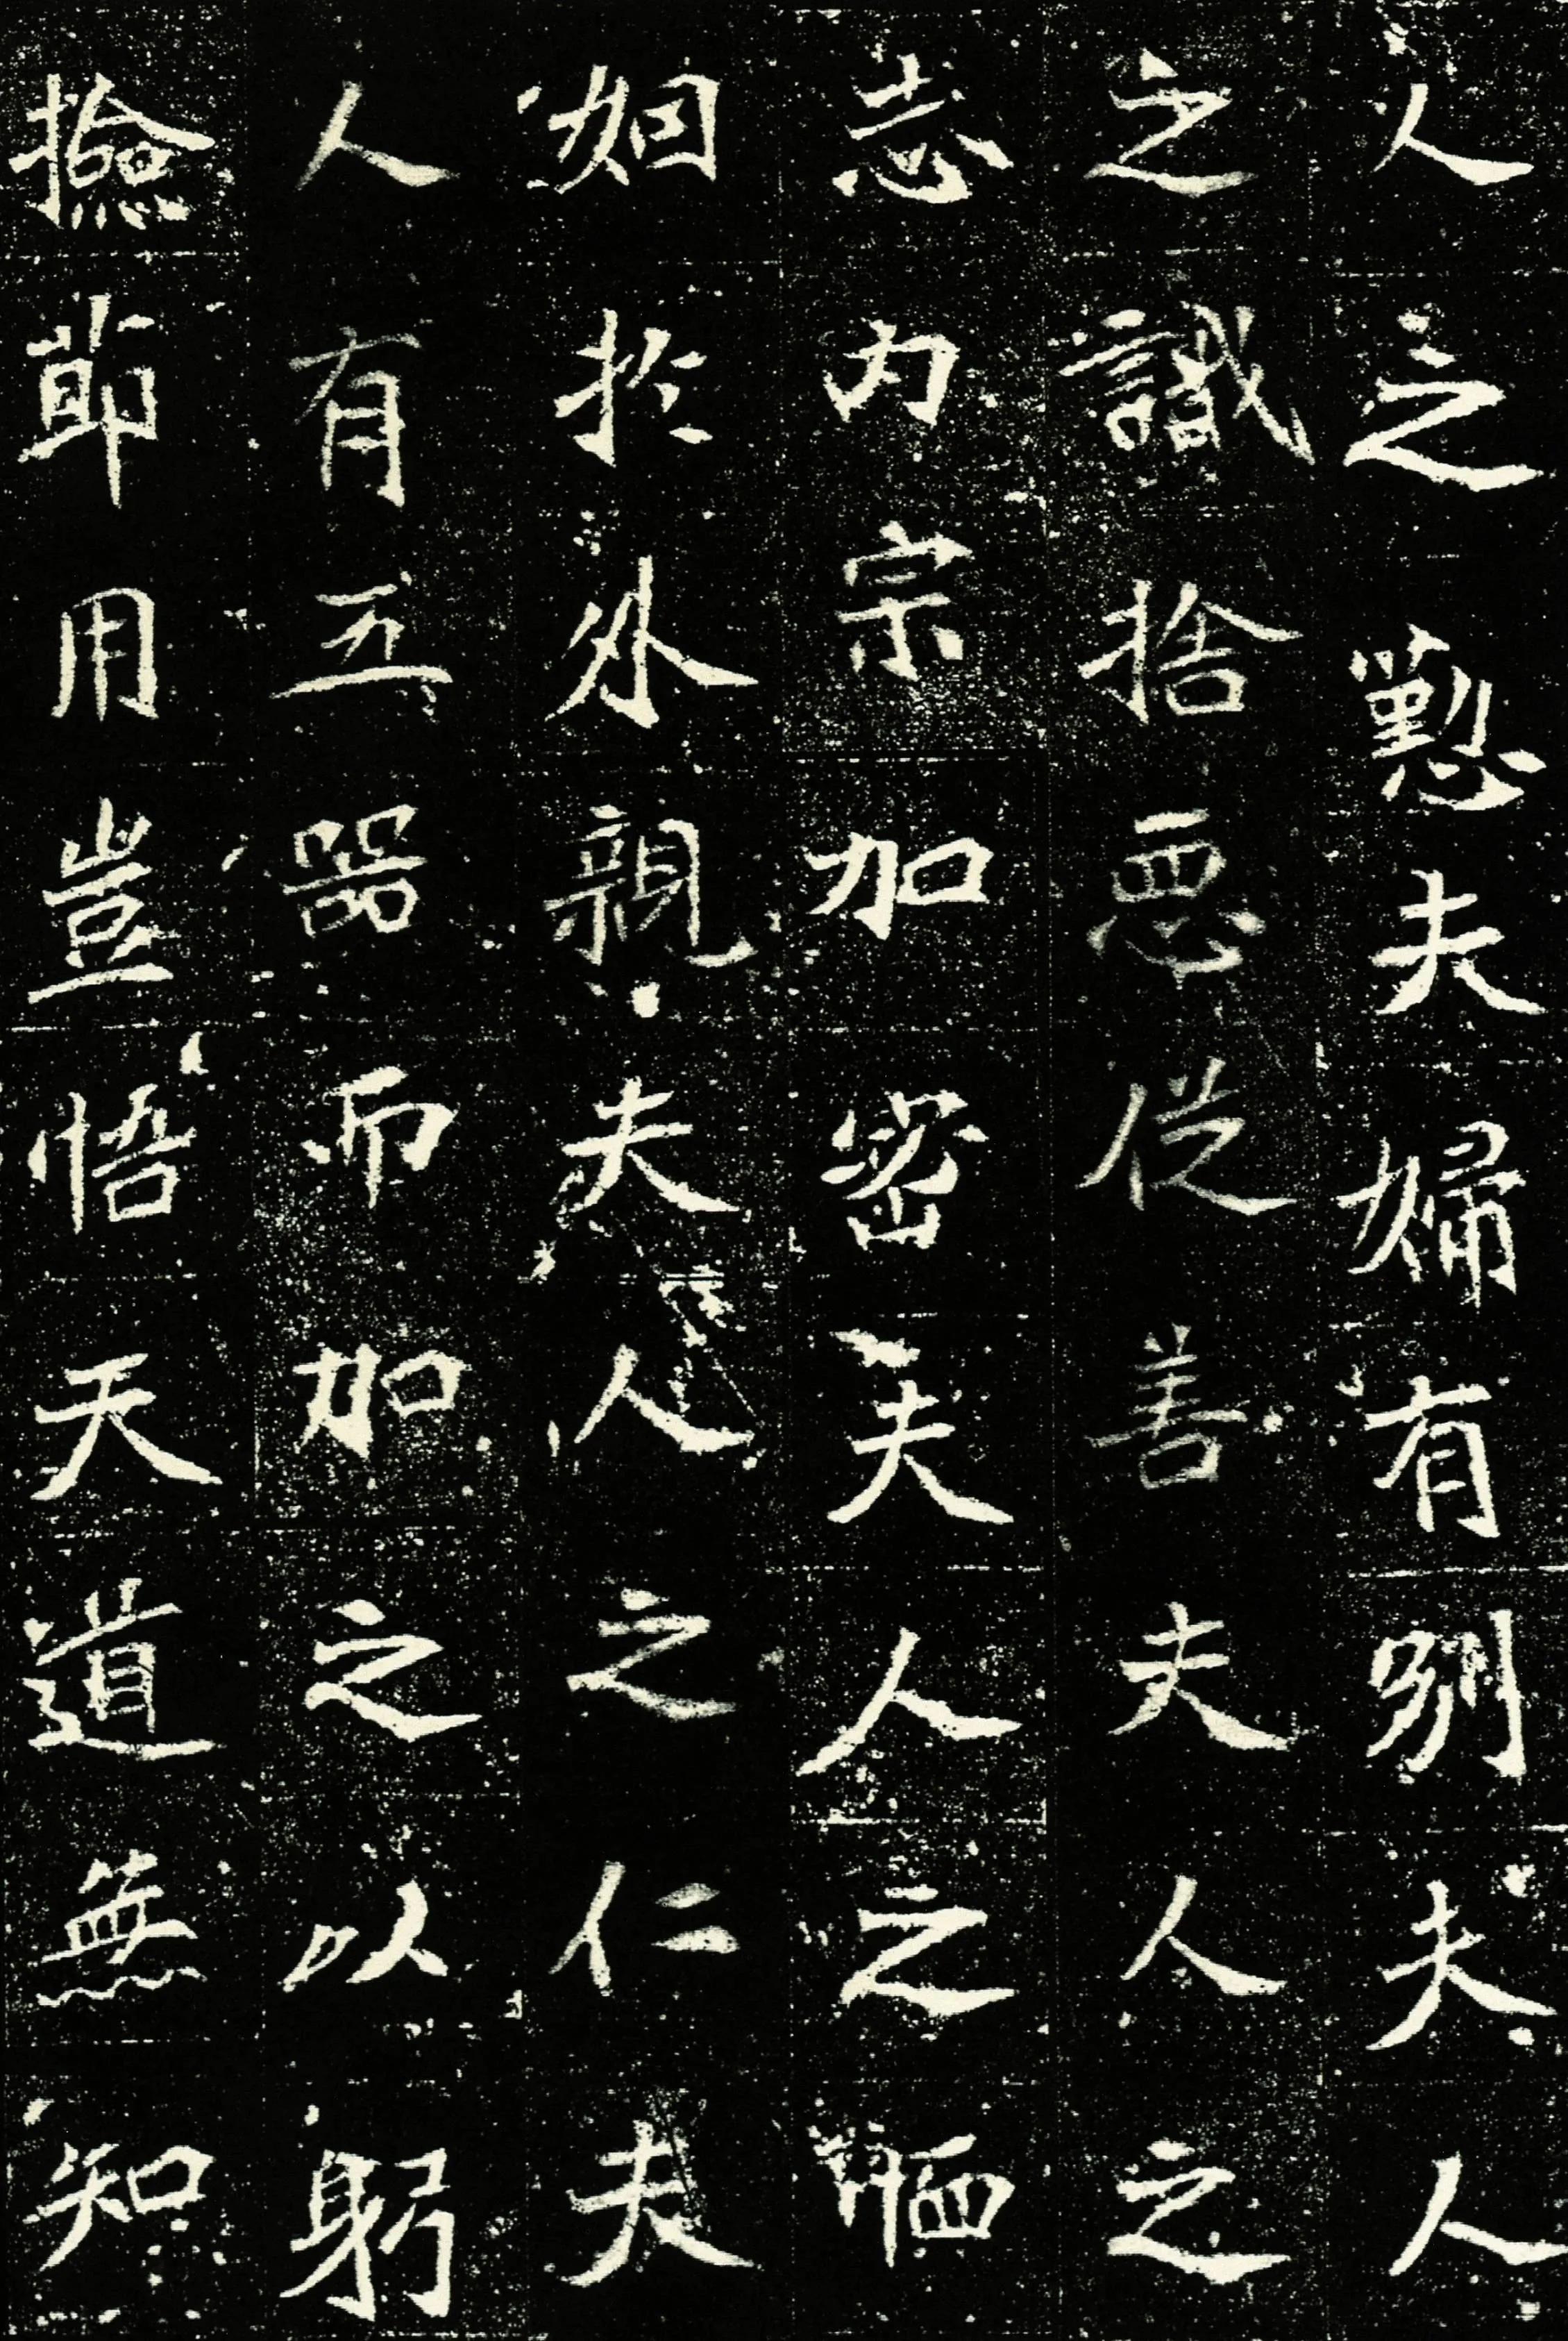 人之懃夫婦有別夫人
之識捨惡從善夫人之
志内宗加密夫人之
姻於外親夫人之仁夫
人有五器而加之以躬
撿節用豈悟天道無知